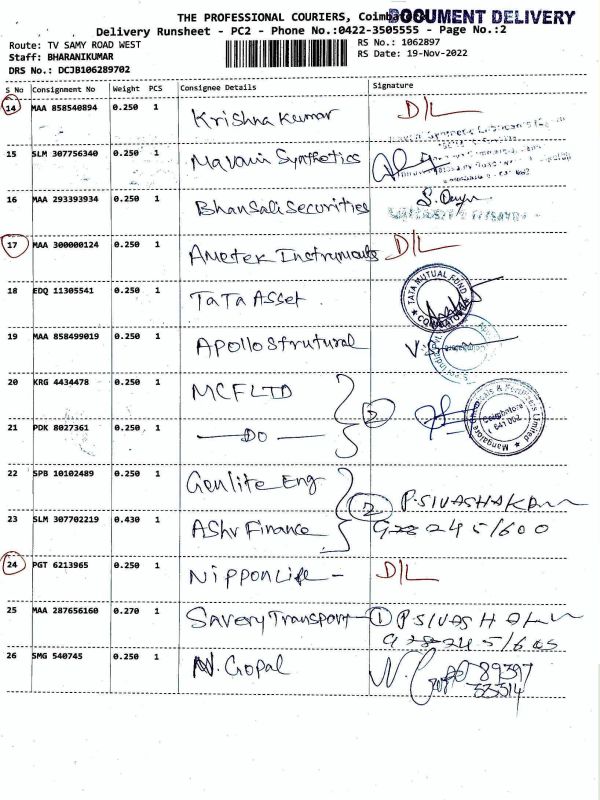 THE PROFESSIONAL COURIERS, Coimbatore
DOCUMENT DELIVERY
Delivery Runsheet - PC2 - Phone No.:0422-3505555 - Page No.:2
Route: TV SAMY ROAD WEST
RS No.: 1062897
Staff: BHARANIKUMAR
RS Date: 19-Nov-2022
DRS No.: DCJB106289702
S No Consignment No Weight PCS Consignee Details Signature
14 MAA 858540894 0.250 1 Krishna Kumar D/L
15 SLM 307756340 0.250 1 Mavani Synthetics
16 MAA 293393934 0.250 1 Bhansali Securities
17 MAA 300000124 0.250 1 Ametek Instruments D/L
18 EDQ 11305541 0.250 1 TATA Asset TATA MUTUAL FUND COIMBATORE
19 MAA 858499019 0.250 1 Apollo Strutural
20 KRG 4434478 0.250 1 MCF LTD 2
Mangalore Chemicals & Fertilizers Limited Coimbatore 641 002
21 PDK 8027361 0.250 1 — DO —
22 SPB 10102489 0.250 1 Genlite Eng 2 P.SIVASHAKAR
23 SLM 307702219 0.430 1 Ashv Finance 928 245/600
24 PGT 6213965 0.250 1 Nippon Life - D/L
25 MAA 287656160 0.270 1 Savery Transport 1
26 SMG 540745 0.250 1 N. Gopal 89397
33514